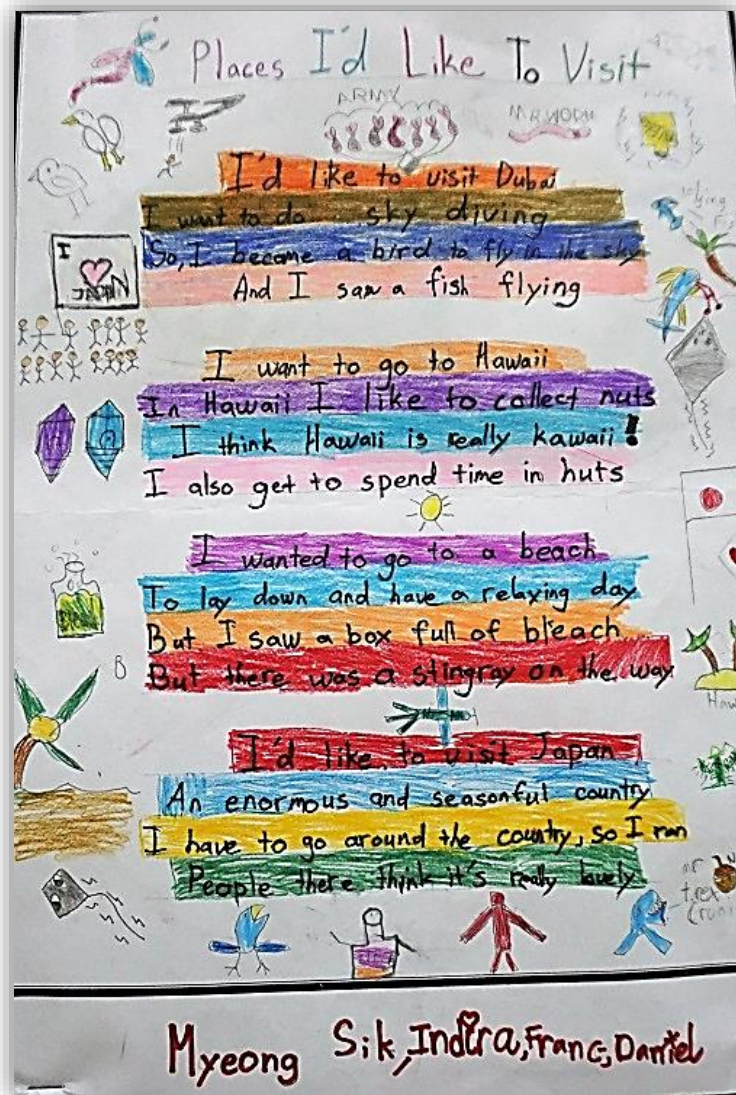 Places I'd Like To Visit
ARMY
MR WORM
I'd like to visit Dubai
I want to do sky diving
So, I became a bird to fly in the sky
And I saw a fish flying
I
JAPAN
I want to go to Hawaii
In Hawaii I like to collect nuts
I think Hawaii is really kawaii!
I also get to spend time in huts
I wanted to go to a beach
To lay down and have a relaxing day
But I saw a box full of bleach
But there was a stingray on the way
B
I'd like to visit Japan
An enormous and seasonful country
I have to go around the country, so I ran
People there think it's really lovely
Myeong Sik, Indira, Franc, Daniel